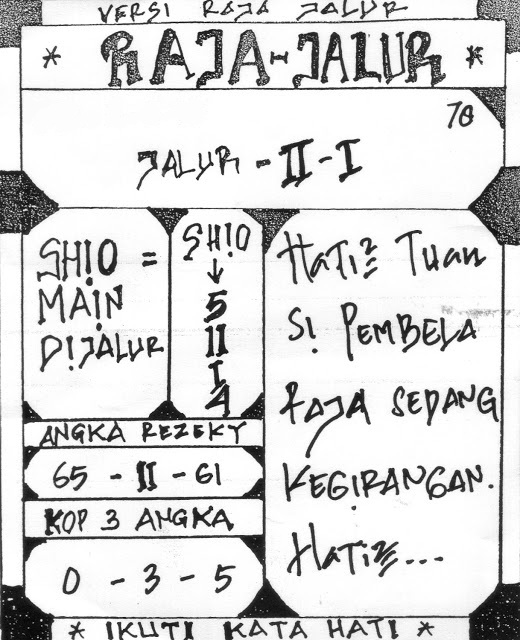 VERSI RAJA JALUR
* RAJA-JALUR *
70
JALUR - II - I
SH!O =
MAIN
D!JALUR
SH!O
↓
5
II
I
4
ANGKA REZEKY
65 - II - 61
KOP 3 ANGKA
0 - 3 - 5
Hati2 Tuan
S! PEMBELA
RAJA SEDANG
KEGIRANGAN.
Hati2...
* IKUTI KATA HATI *